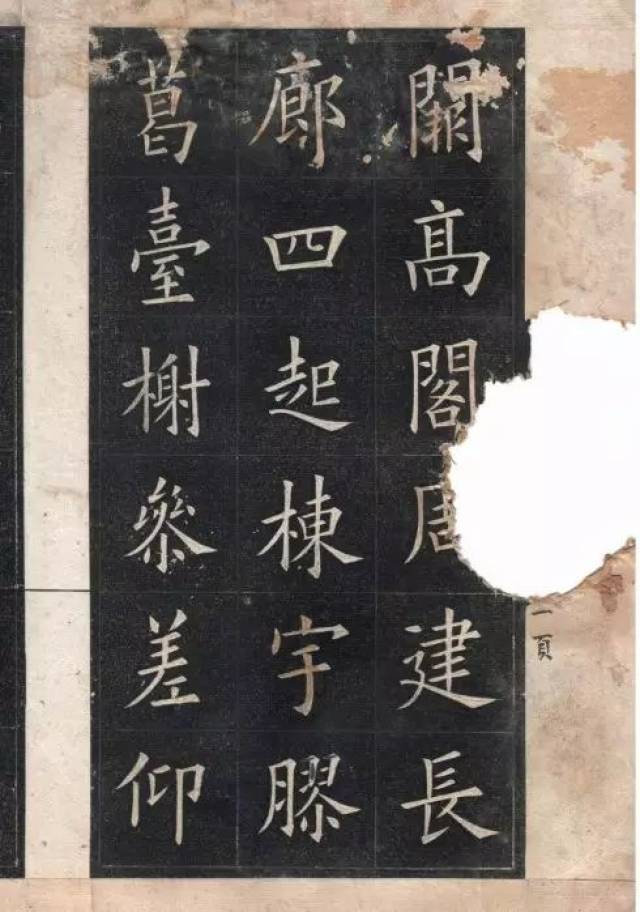 闕髙閣周建長
廊四起棟宇膠
葛臺榭參差仰
一頁